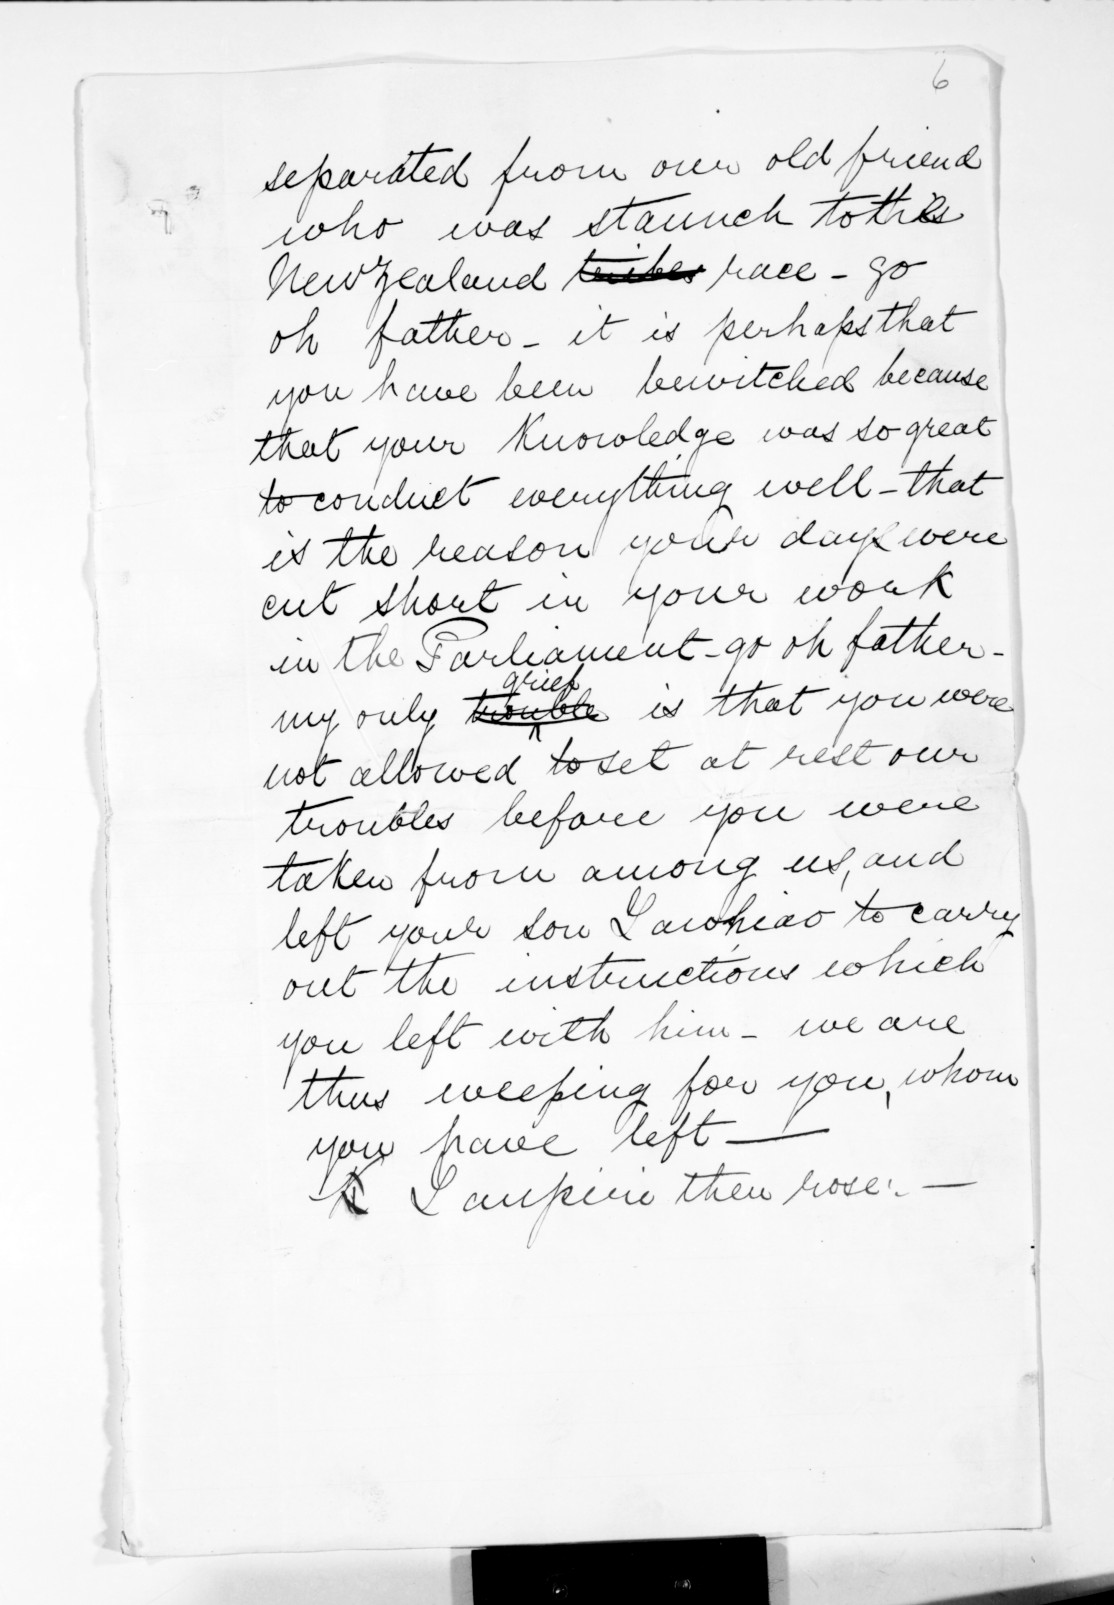 6
separated from our old friend
who was staunch to this
New Zealand tribes race - go
oh father - it is perhaps that
you have been bewitched because
that your Knowledge was so great
to conduct everything well - that
is the reason your days were
cut short in your work
in the Parliament - go oh father -
grief
my only trouble is that you were
not allowed to set at rest our
troubles before you were
taken from among us, and
left your son Tawhiao to carry
out the instructions which
you left with him - we are
thus weeping for you, whom
you have left —
Taupiri then rose: —